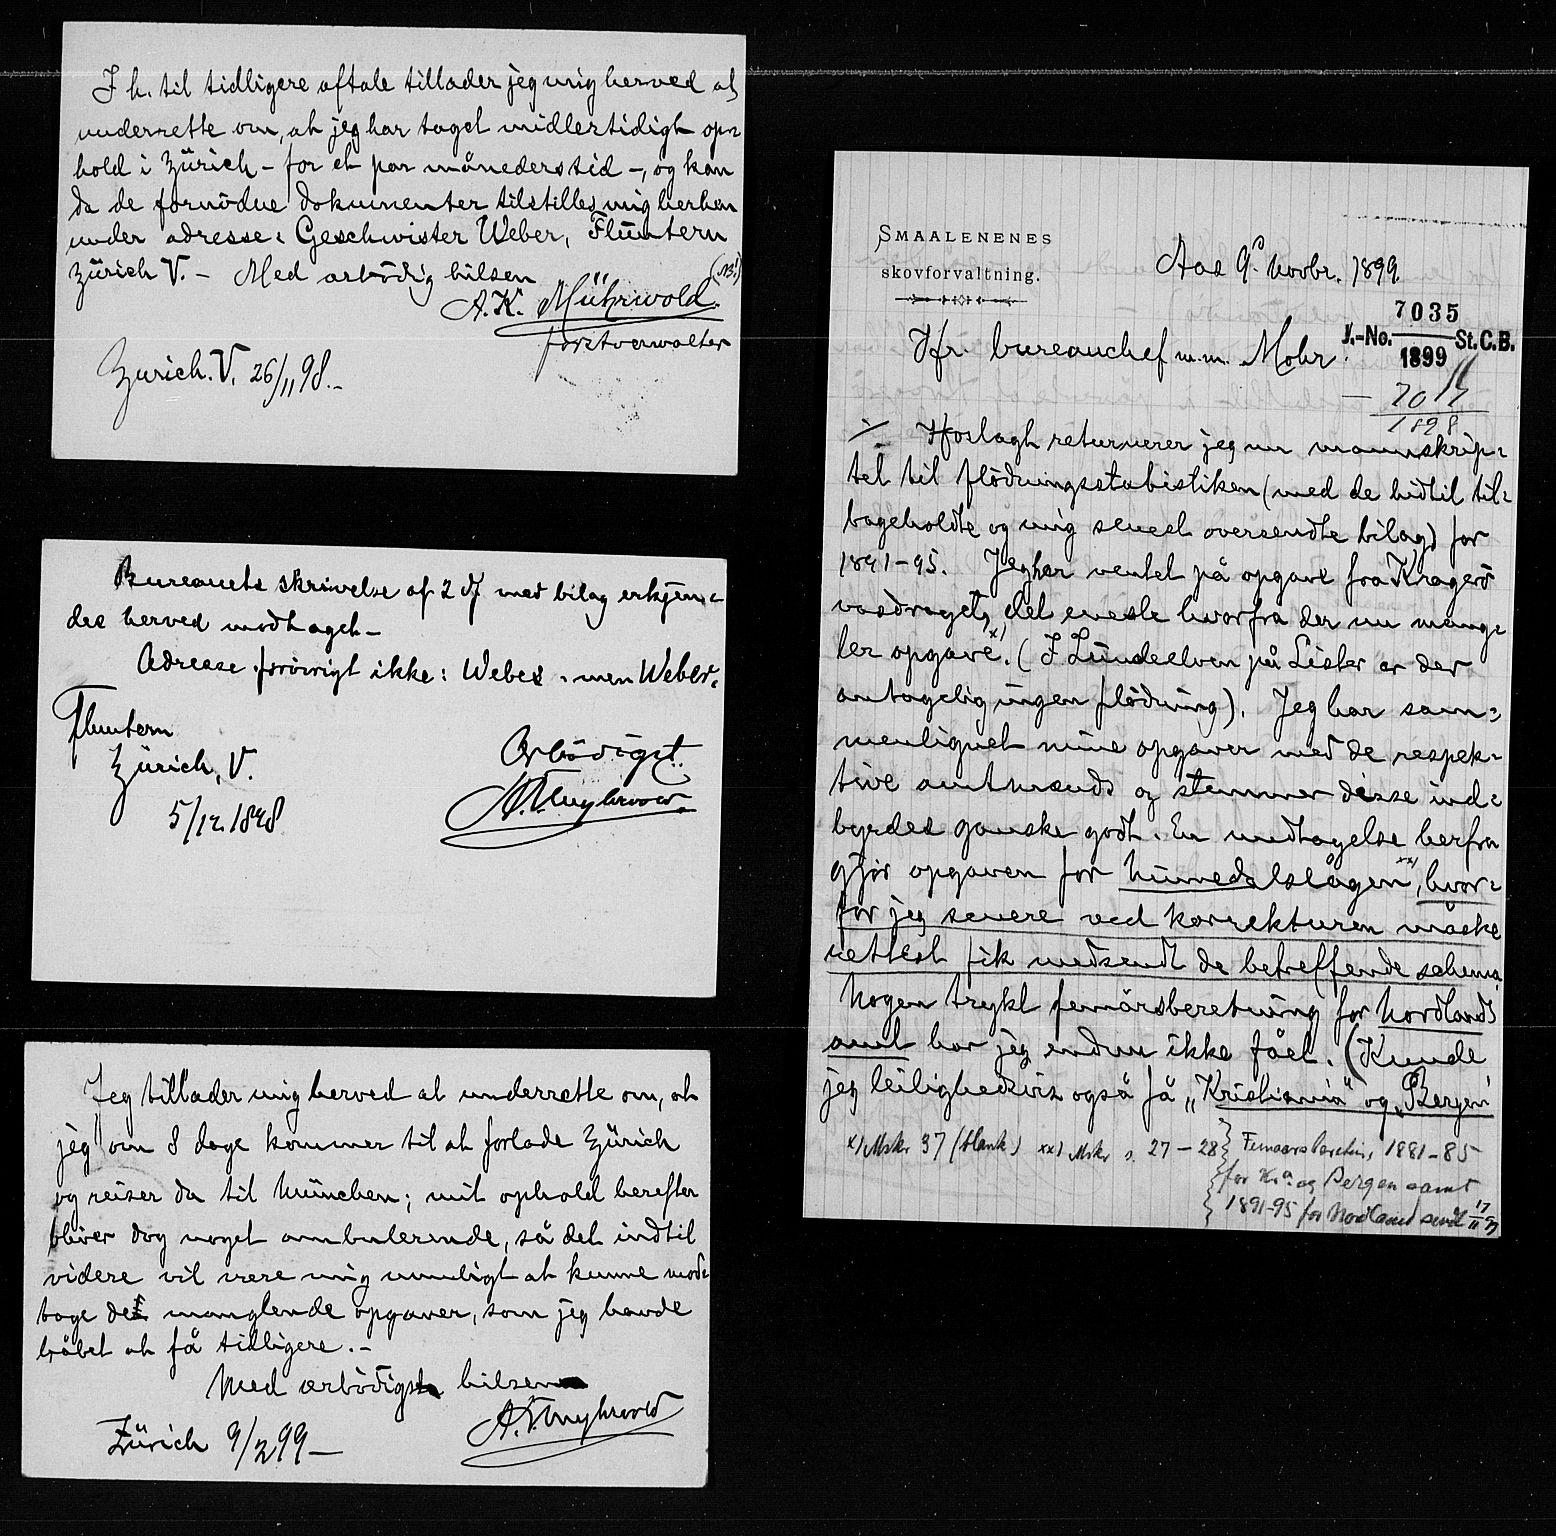 I h. til tidligere aftale tillader jeg mig herved at
underrette om, at jeg har taget midlertidigt op=
hold i Zürich – for et par måneders tid –, og kan
da de fornødne dokumenter tilstilles mig herhen
under adresse: Geschwister Weber, Flüntern
Zürich V. – Med ærbødig hilsen
(NB!)
A. K. Mührwold.
forstverwalter
Zürich. V. 26/11 98. –
Bureauets skrivelse af 2 ds med bilag erkjen=
des herved modtaget –
Adresse forövrigt ikke: Webes. men Weber.
Fluntern
Zürich, V.
5/12. 1898
Ærbödigst.
A. K. Myhrwold.
Jeg tillader mig herved at underrette om, at
jeg om 8 dage kommer til at forlade Zürich
og reiser da til München; mit ophold herefter
bliver dog noget ambulerende, så det indtil
videre vil være mig umuligt at kunne mod=
tage de manglende opgaver, som jeg havde
håbet at få tidligere. –
Med ærbödigst hilsen
A. K. Myhrwold
Zürich 9/2 99 –
SMAALENENES
skovforvaltning.
Aas 9. novbr. 1899
J.-No. 7035 St. C. B.
1899
1898
Hr. bureauchef m. m. Mohr.
Hoslagt returnerer jeg nu manuskrip=
tet til flödningsstatistiken (med de hidtil til=
bageholdte og mig senest oversendte bilag) for
1891–95. Jeg har ventet på opgave fra Kragerö
vasdraget, det eneste hvorfra der nu mang=
ler opgave x). (I Lundeelven på Lister er der
antagelig ingen flödning). Jeg har sam=
menlignet mine opgaver med de respek=
tive amtmænds og stemmer disse ind=
byrdes ganske godt. En undtagelse herfra
gjör opgaven for Numedalslågen xx), hvor=
for jeg senere ved korrekturen måske
rettest fik medsendt de betreffende schema
Nogen trykt femårsberetning for Nordlands
amt har jeg endnu ikke fået. (Kunde
jeg leilighedsvis også få „Kristiania" og „Bergen"
x) Mskr 37 (blank) xx) Mskr s. 27 – 28
Femaarsberetn. 1881–85
for Kr.a og Bergen samt
1891–95 for Nordland sendt 17/11 99